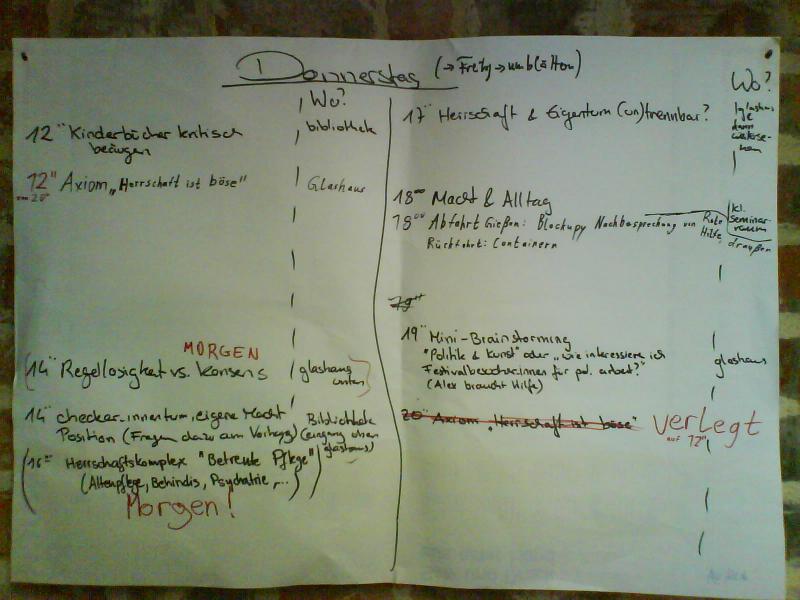 Donnerstag (→ Freitag → umblättern)
Wo?
12°° Kinderbücher kritisch
bibliothek
12°° Axiom „Herrschaft ist böse"
Glashaus
MORGEN
(14°° Regellosigkeit vs. Konsens
glashaus
unten)
14°° checker_innentum, eigene Macht
Bibliothek
Position (Fragen dazu am Vortrag)
(eingang oben
glashaus)
(16°° Herrschaftskomplex "Betreute Pflege"
(Altenpflege, Behindis, Psychiatrie,...)
Morgen!
Wo?
17°° Herrschaft & Eigentum (un)trennbar?
18°° Macht & Alltag
kl.
seminar-
raum
18°° Abfahrt Gießen: Blockupy Nachbesprechung von Rote
Hilfe
draußen
Rückfahrt: Containern
19°°
19°° Mini-Brainstorming
"Politik & Kunst" oder „wie interessiere ich
Festivalbesucher_innen für pol. arbeit?"
(Alex braucht Hilfe)
glashaus
20°° Axiom „Herrschaft ist böse"
verlegt
auf 12°°